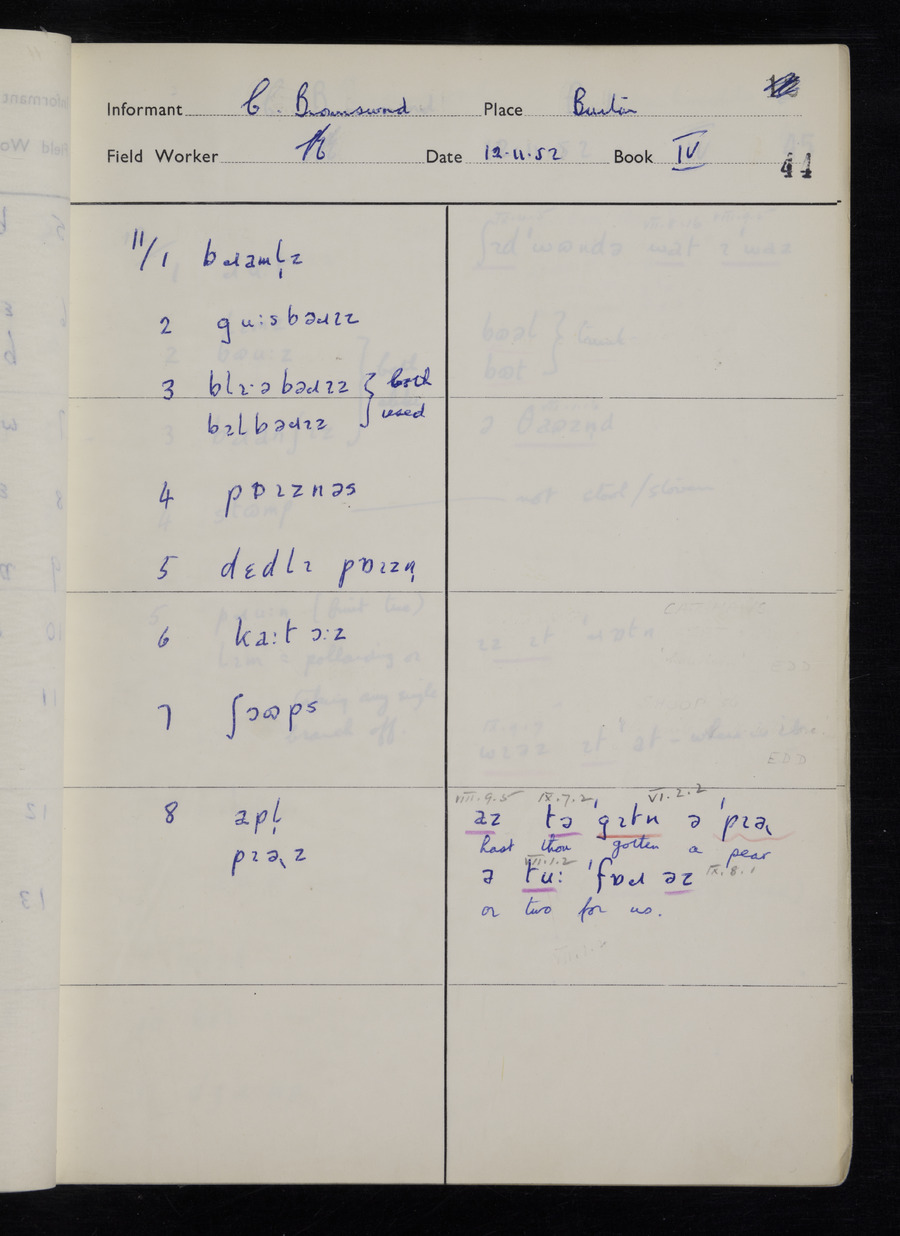 Informant C. Brownsword Place Burton
Field Worker Date 12.11.52 Book IV
44
11/1 bɹamḷz
2 gu:sbəɹɪz
3 blɪ·əbəɹɪz } both
bɪlbəɹɪz } used
4 pɒɪznəs
5 dɛdlɪ pɒɪzṇ
6 ka:t ɔ:z
7 ʃɔɷps
8 apḷ
pɪəɻz
VIII.9.5 IX.7.2 VI.2.2
az tə ˈgɪtn ə ˈpɪəɻ
hast thou gotten a pear
VII.1.2
ə tu: ˈfɒɹ əz IX.8.1
or two for us.